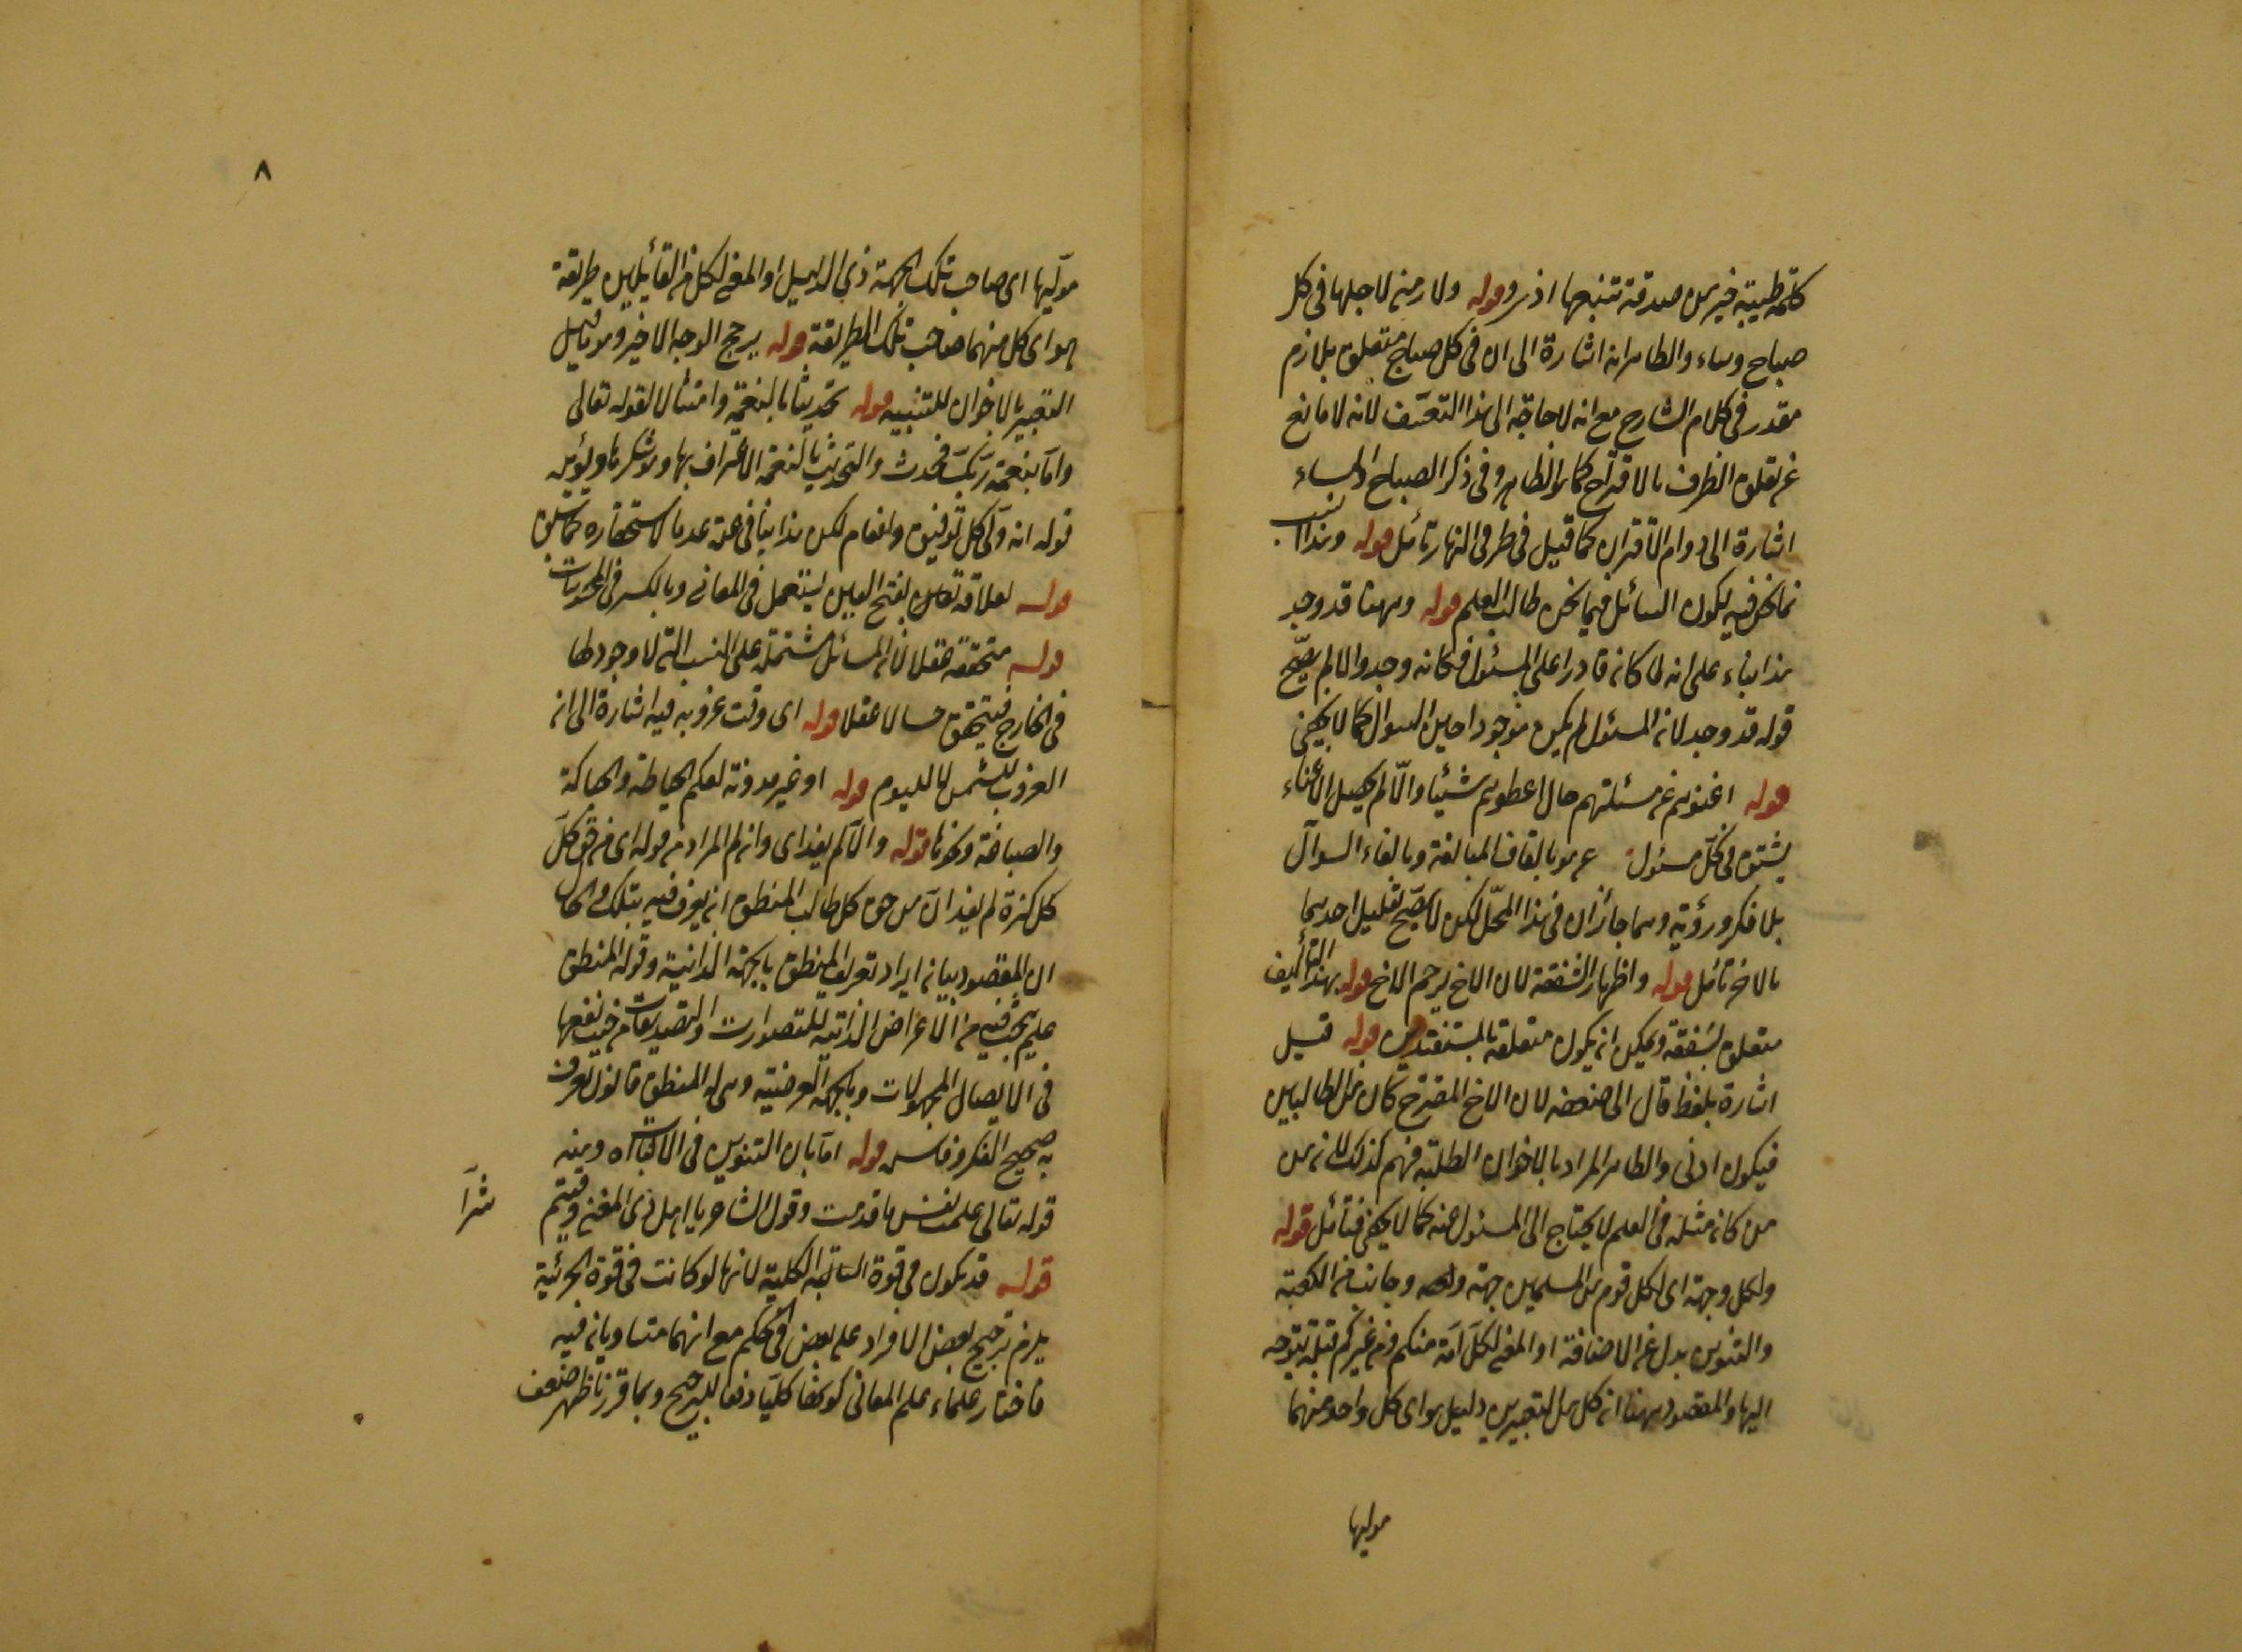 كلمة طيبة خير من صدقة تتبعها اذى قوله ولازمنى لاجلها فى كل
صباح ومساء والظاهر انه اشارة الى ان فى كل صباح متعلق بلازم
مقدر فى كلام الشارح مع انه لا حاجة الى هذا التعسف لانه لا مانع
عن تعلق الظرف بالاقتراح كما هو الظاهر وفى ذكر الصباح والمساء
اشارة الى دوام الاقتران كما قيل فى طرفى النهار تأمل قوله وهذا انسب
نحن فيه لكون السائل فيما نحن طالب العلم قوله وههنا قد وجد
هذا بناء على انه لما كان قادرا على المسئول فكانه وجد والا لم يصح
قوله قد وجد لان المسئول لم يكن موجودا حين السوال كما لا يخفى
قوله اغنوهم عن مسئلتهم حال اعطوهم شيئا والا لم يحصل الاغناء
فى كل مسئول بالقاف المبالغة وبالفاء السوال
بلا فكر ورؤية وهما جائزان فى هذا المحل لكن لا يصح تعليل احدهما
بالاخر تأمل قوله واظهار الشفقة لان الاخ يرحم الاخ قوله بهذا التأليف
متعلق بشفقة ويمكن ان يكون متعلقة بالمستفتدين قوله قيل
اشارة بلفظ قال الى ضعفه لان الاخ المقترح كان من الطالبين
فيكون ادنى والظاهر المراد بالاخوان الطلبة فهم كذلك لان من
من كان مثله فى العلم لا يحتاج الى المسئول عنه كما لا يخفى فتأمل قوله
ولكل وجهة اى لكل قوم من المسلمين جهة وجانب من الكعبة
والتنوين بدل عن الاضافة او المعنى لكل امة منكم ومن غيركم قبلة يتوجه
اليها والمقصود ههنا ان كل من التعبيرين دليل هو اى كل واحد منهما
موليها
٨
موليها اى صاحب تلك الجهة ذى الدليل او المعنى لكل من القائلين طريقة
هو اى كل منهما صاحب تلك الطريقة قوله يرجح الوجه الاخير وهو قيل
التعبير بالاخوان للتنبيه قوله تحديثا بالنعمة وامتثالا لقوله تعالى
واما بنعمة ربك فحدث والتحديث بالنعمة الاعتراف بها وهو شكرها ويؤيد
قوله انه ولى كل توفيق وانعام لكن هذا ينافى عده بالاستحقاره كما سبق
قوله لعلاقة تعلق بفتح العين يستعمل فى المعانى وبالكسر فى المحسوسات
قوله متحققة عقلا لان المسائل مشتملة على النسب التى لا وجود لها
فى الخارج فيتحقق حسا لا عقلا قوله اى وقت غروبه فيه اشارة الى ان
الغروب للشمس لا لليوم قوله او غير مدونة لعلم الخياطة والحياكة
والصباغة ونحوها قوله والا لم يفد اى وان لم المراد من قوله اى من حق كل
كل كثرة لم يفد ان من حق كل طالب المنطق ان يعرف فيه بتلك الجهة
ان المقصود بيان ايراد تعريف المنطق بالجهة الذاتية وقوله المنطق
علم يبحث فيه عن الاعراض الذاتية للتصورات والتصديقات من حيث نفعها
فى الايصال المجهولات وبالجهة العرضية وهى المنطق قانون يعرف
به صحيح الفكر وفاسده قوله اما بان التنوين فى الاثبات ومنه
قوله تعالى علمت نفس ما قدمت وقول الشاعر يا اهل ذى المغنى وقيتم شرا
قوله قد يكون فى قوة السالبة الكلية لانها لو كانت فى قوة الجزئية
يلزم ترجيح بعض الافراد على بعض فى الحكم مع انهما متساويان فيه
فاختار علماء علم المعانى كونها كليا دفعا للترجيح وبما قررنا ظهر ضعف